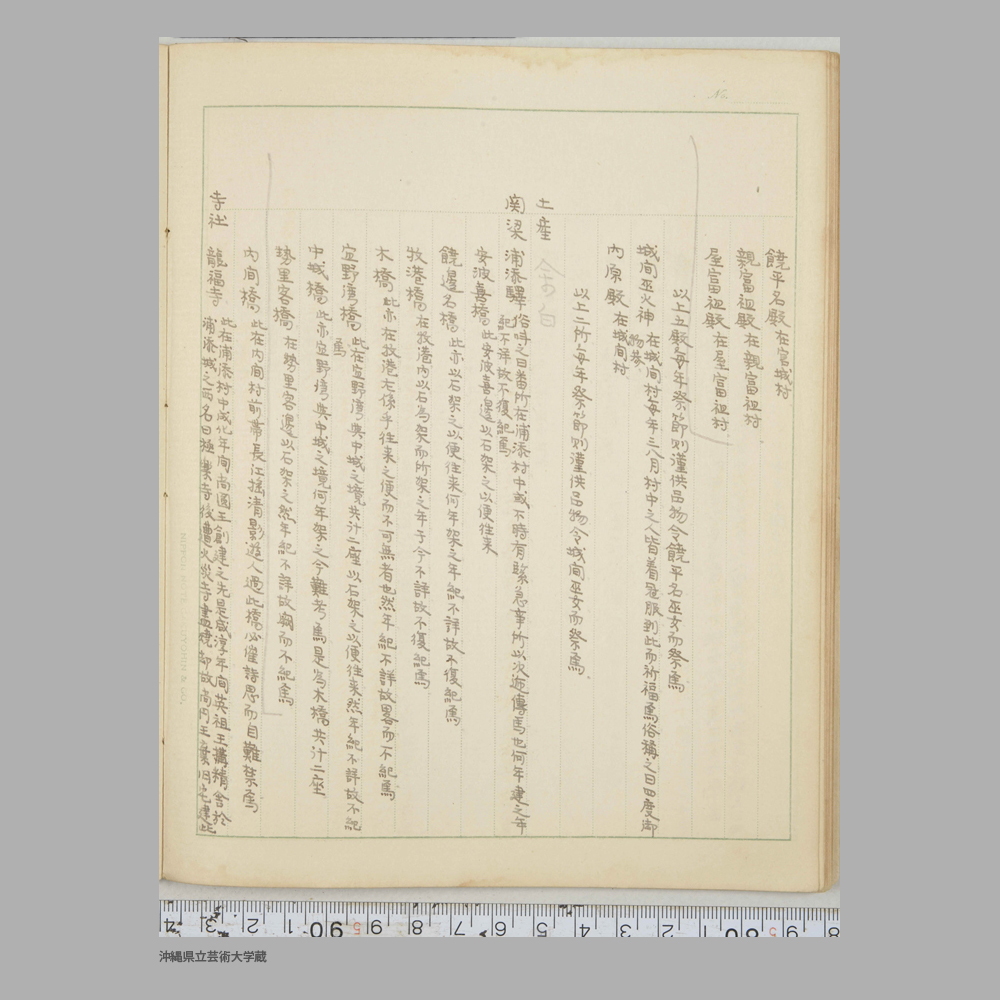 饒平名殿 在宮城村
親富祖殿 在親富祖村
屋富祖殿 在屋富祖村
以上五殿毎年祭節則謹供品物令饒平名巫女而祭焉
城間巫火神 在城間村毎年三八月村中之人皆着冠服到此而祈福焉俗稱之曰四度御
物参
内原殿 在城間村
以上二所毎年祭節則謹供品物令城間巫女而祭焉
土産
関梁 浦添驛 俗呼之曰番所在浦添村中或不時有緊急事所以次逓傳馬也何年建之年
紀不詳故不復紀焉
安波喜橋 此安波喜邊以石架之以便往来
饒邊名橋 此亦以石架之以便往来何年架之年紀不詳故不復紀焉
牧港橋 在牧港内以石為架而所架之年于今不詳故不復紀焉
木橋 此亦在牧港右係乎往来之便而不可無者也然年紀不詳故畧而不紀焉
宜野湾橋 此在宜野湾與中城之境共計二座以石架之以便往来然年紀不詳故不紀
焉
中城橋 此亦宜野湾與中城之境何年架之今難考焉是為木橋共計二座
勢里客橋 在勢里客邊以石架之然年紀不詳故闕而不紀焉
内間橋 此在内間村前帯長江揺清影遊人過此橋必催詩思而自難禁焉
寺社 龍福寺 此在浦添村中成化年間尚圓王創建之先是咸淳年間英祖王搆精舎於
浦添城之西名曰極楽寺後遭火災寺盡焼却故尚円王
沖縄県立芸術大学蔵